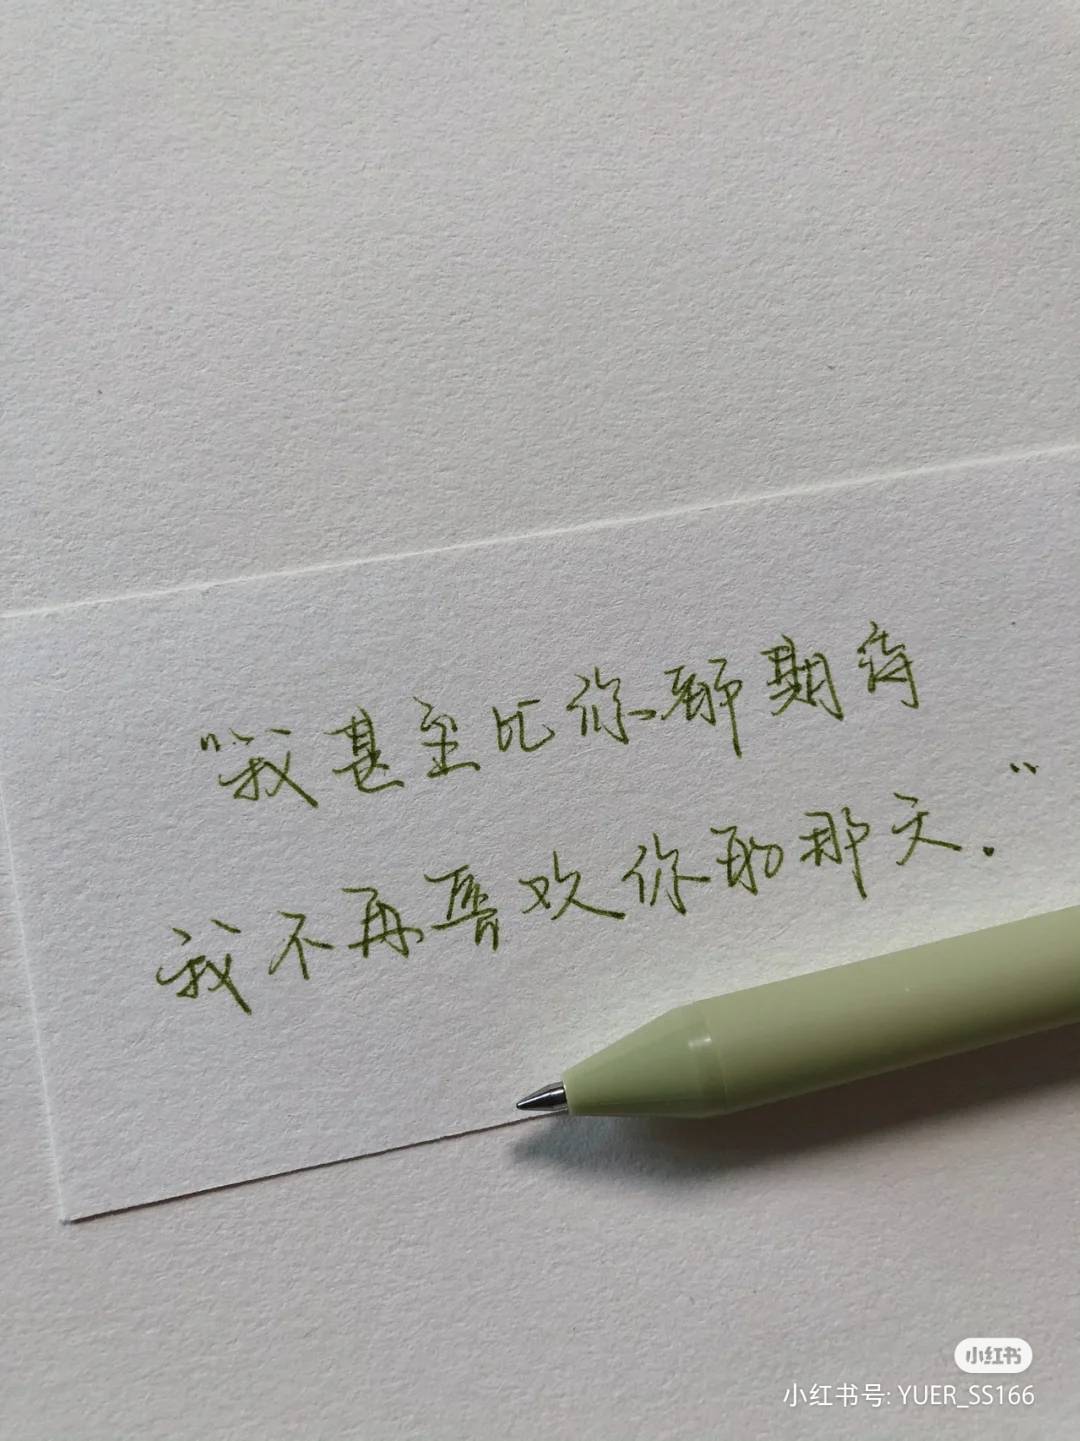 "我甚至比你都期待
我不再喜欢你的那天."
小红书
小红书号: YUER_SS166